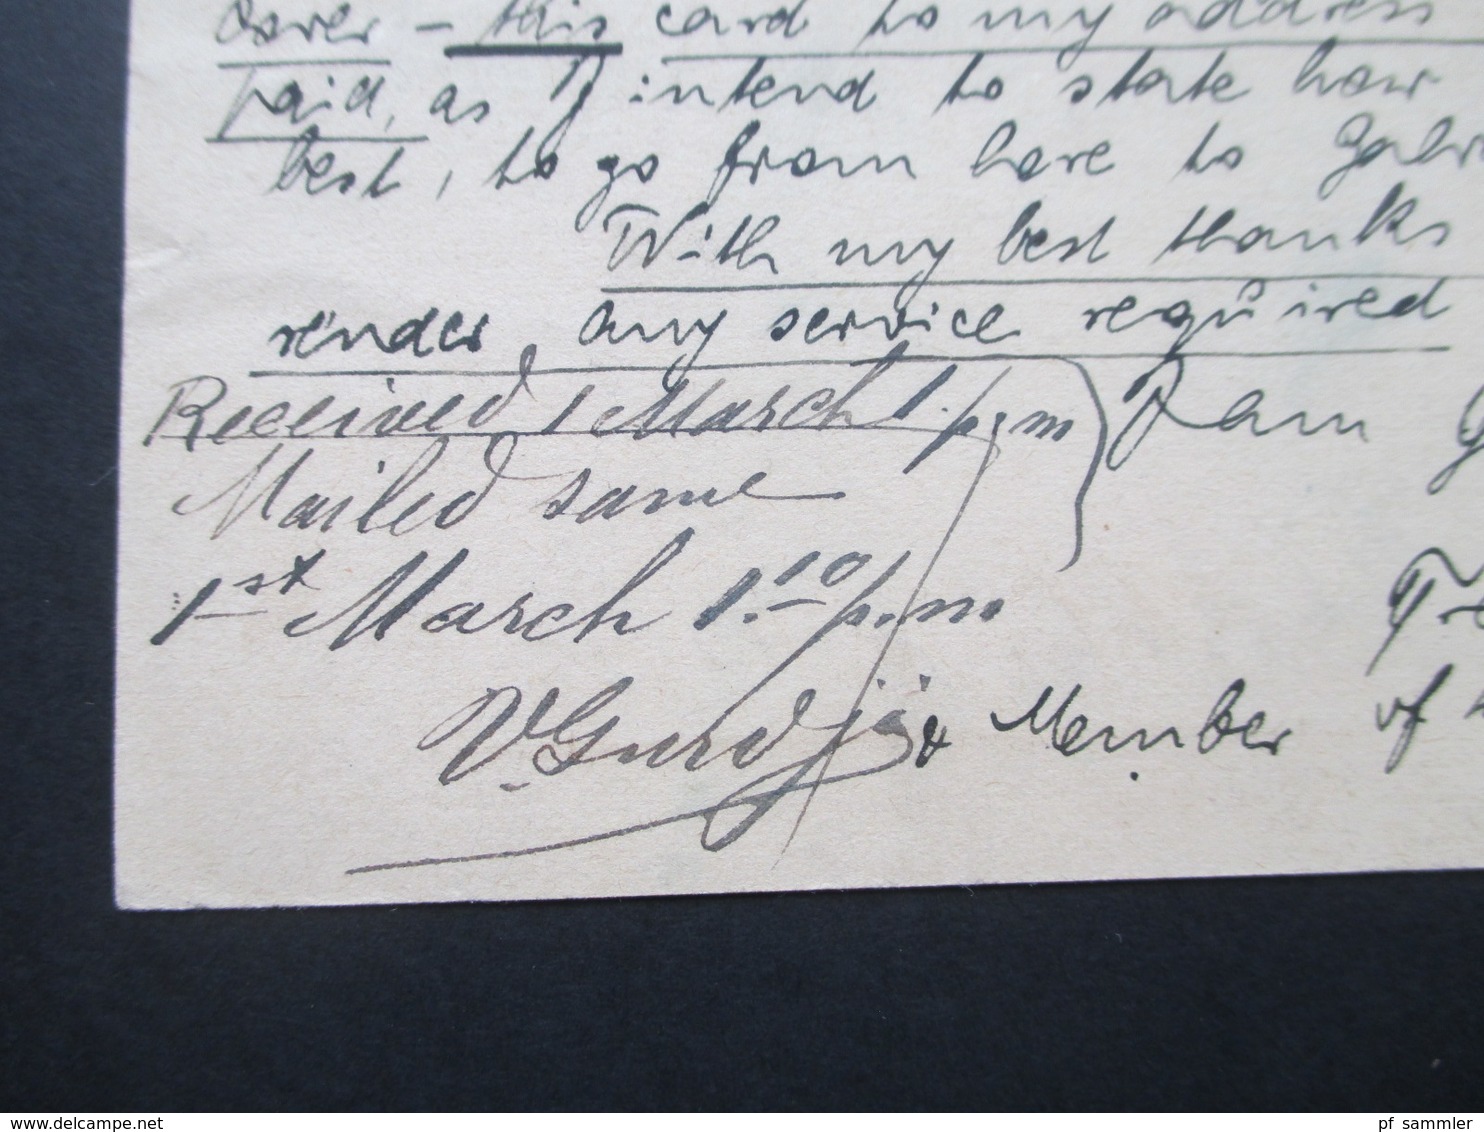 over - this card to my address
paid, as I intend to state how
best, to go from here to
With my best thanks
render any service required
Received 1 March 1. p.m
I am
Mailed same
1st March 1.10 p.m.
V. Gurdji
& Member of
www.delcampe.net
pf_sammler